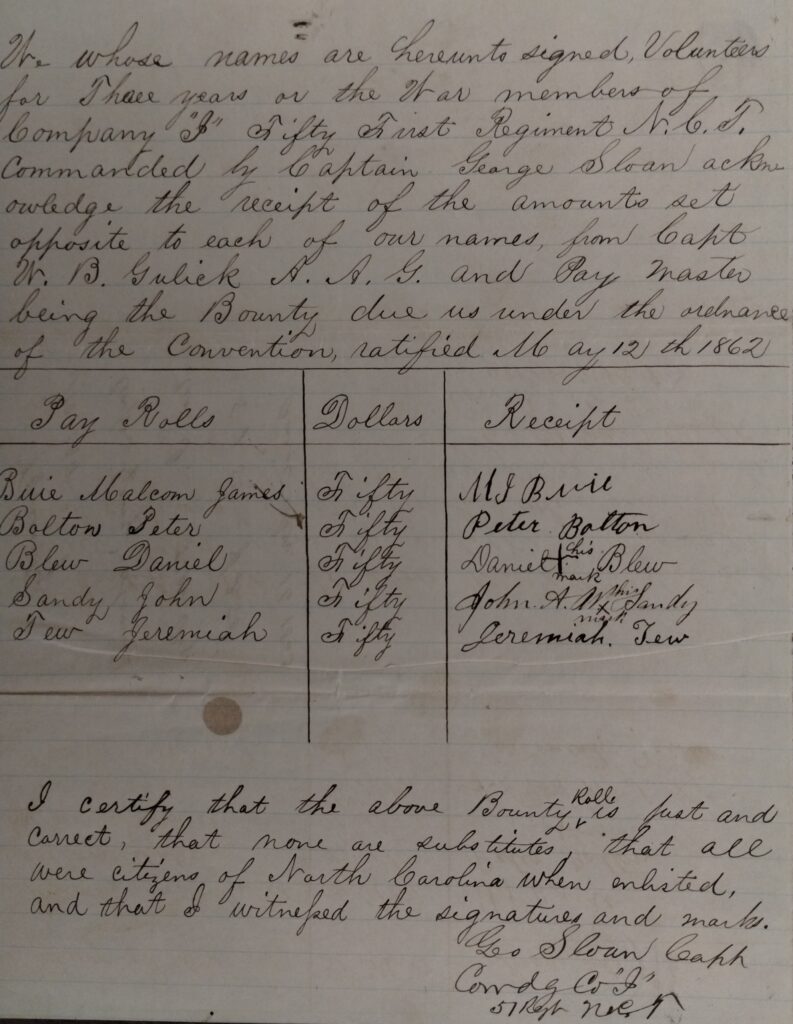 We whose names are hereunto signed, Volunteers
for Three years or the War members of
Company "I" Fifty First Regiment N. C. T.
commanded by Captain George Sloan ackn
owledge the receipt of the amounts set
opposite to each of our names, from Capt
W. B. Gulick A. A. G. and Pay Master
being the Bounty due us under the ordnance
of the Convention, ratified May 12th 1862
Pay Rolls Dollars Receipt
Buie Malcom James Fifty MJ Buie
Bolton Peter Fifty Peter Bolton
Blew Daniel Fifty Daniel his + mark Blew
Sandy John Fifty John A. his x mark Sandy
Tew Jeremiah Fifty Jeremiah. Tew
I certify that the above Bounty Rolle is just and
correct, that none are substitutes, that all
were citizens of North Carolina when enlisted,
and that I witnessed the signatures and marks.
Geo Sloan Capt
Comdg Co "I"
51 Regt N C T